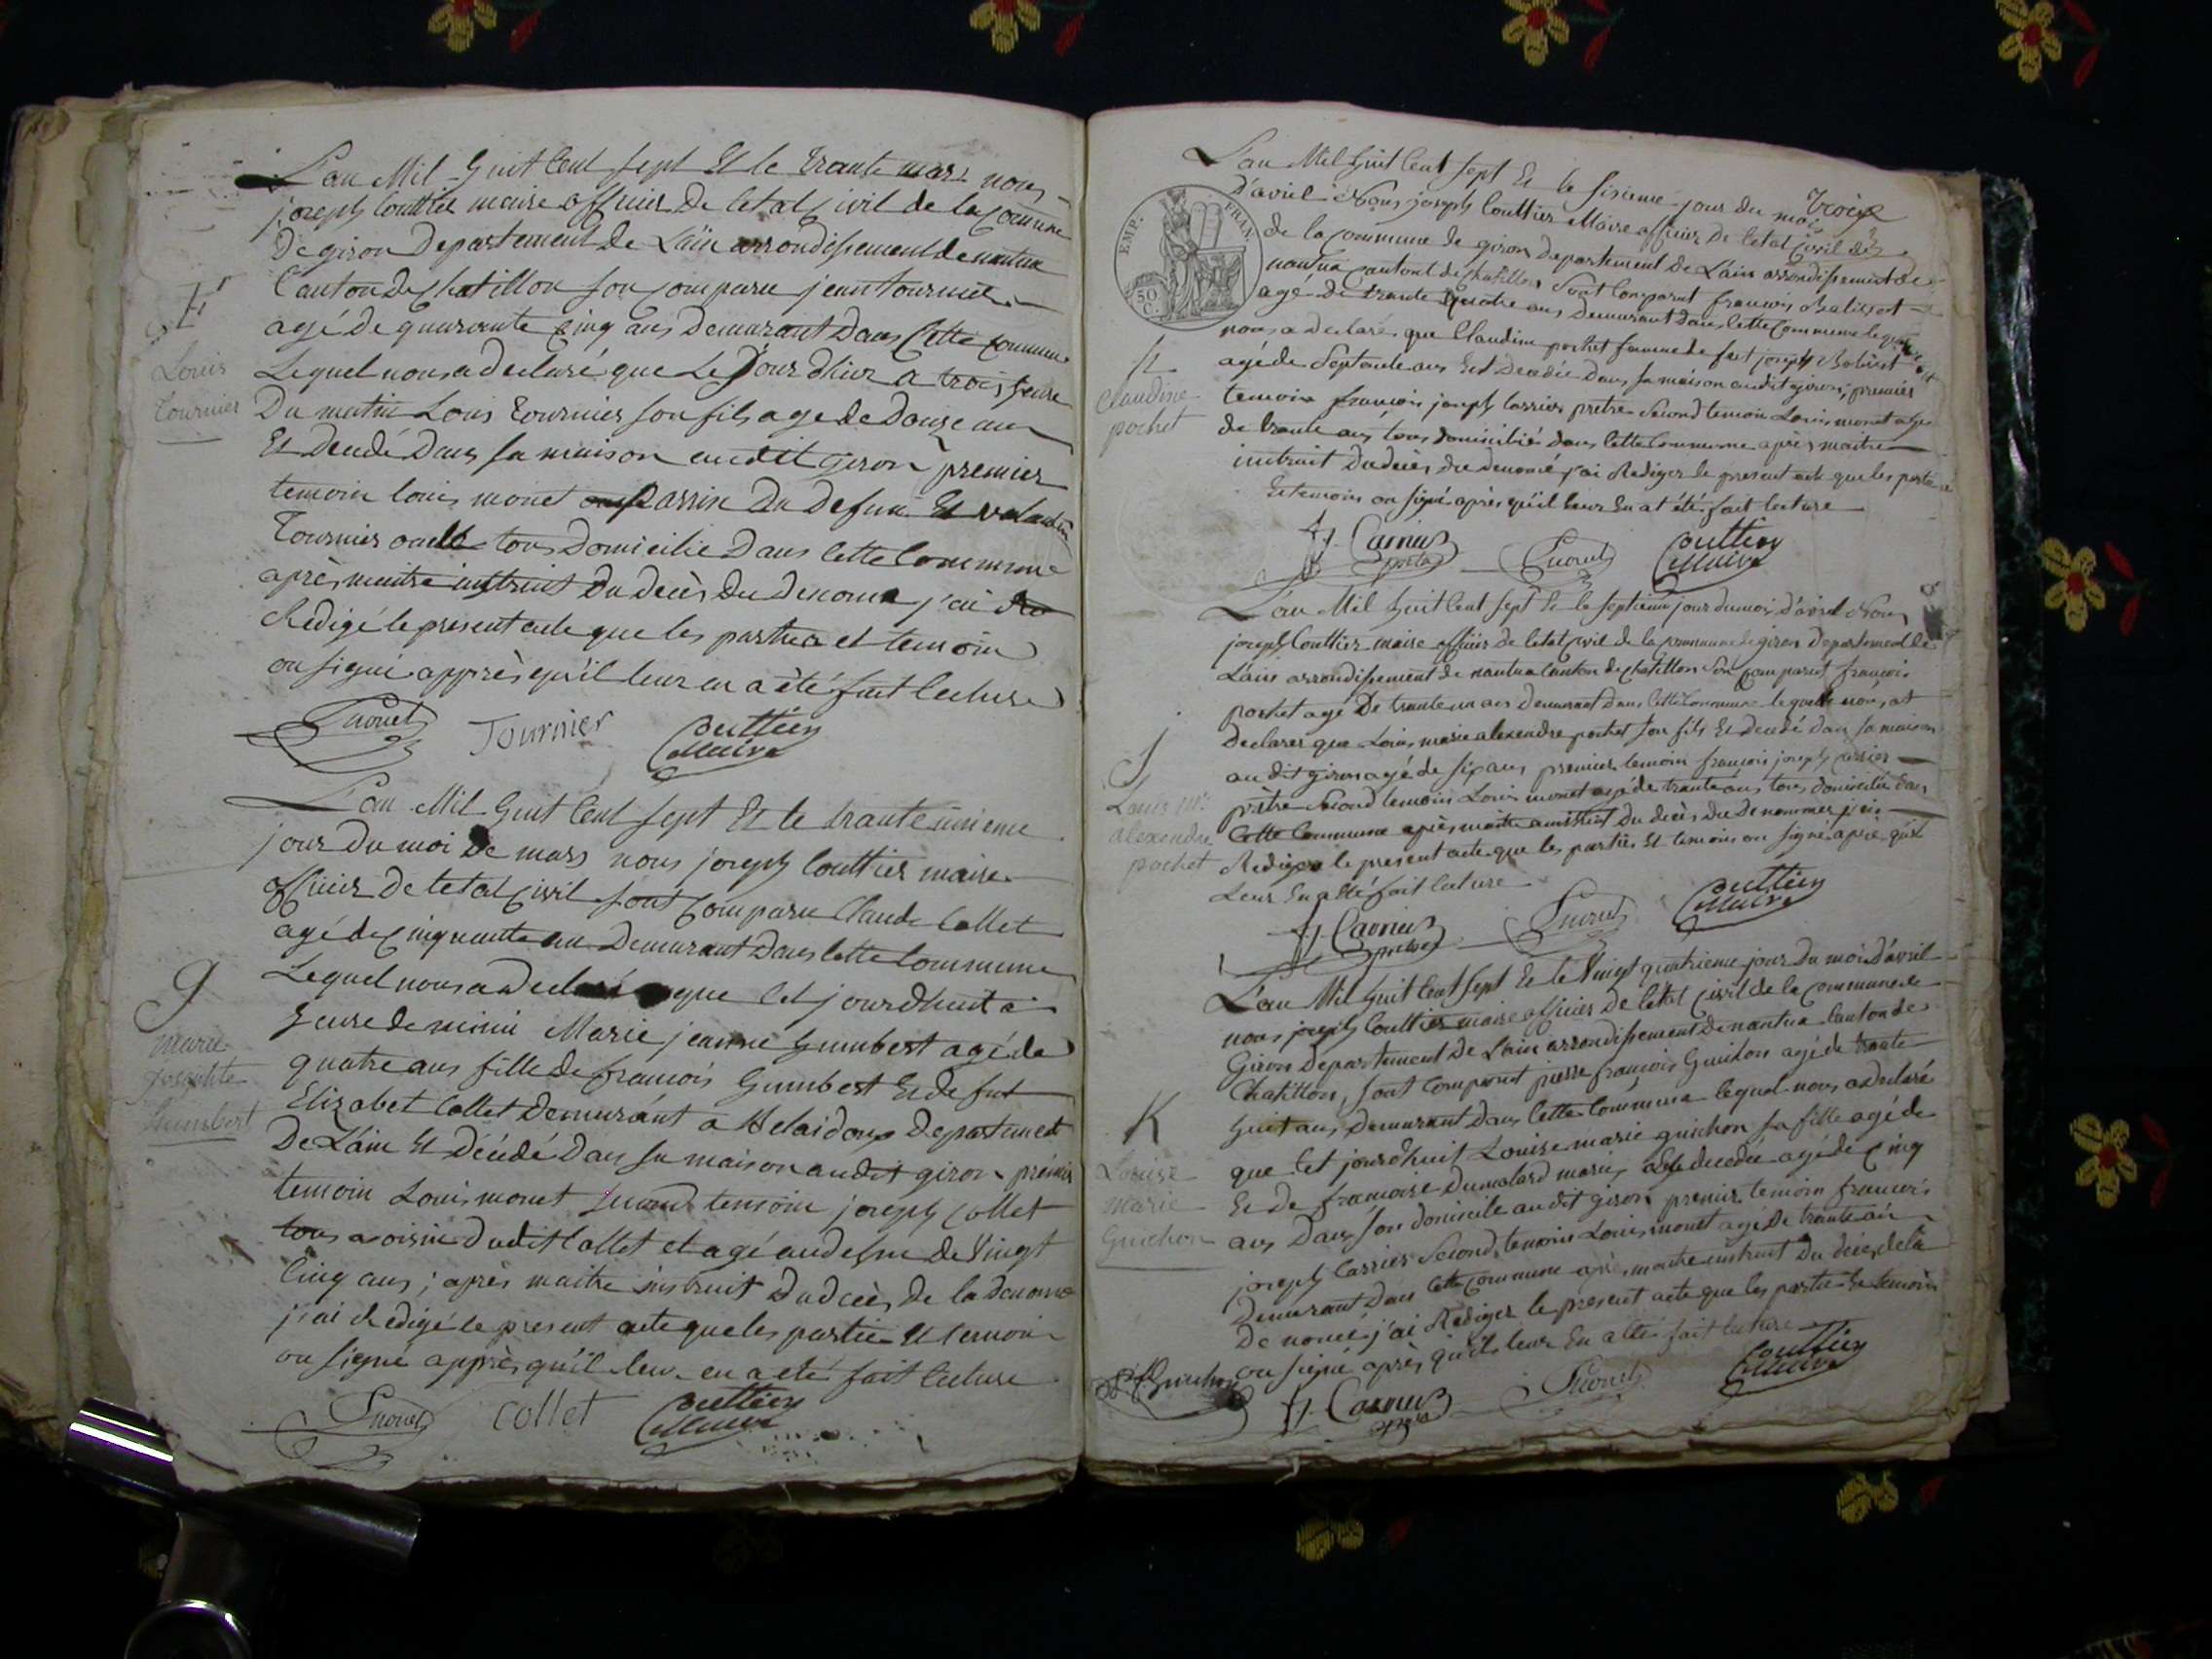 L'an Mil huit Cent sept Et le trante mars nous
joseph Couttier maire officier De letat Civil de la Commune
De giron Departement de L'ain arrondissement de nantua
Canton de Chatillon son comparu jean tournier
agé de quarante Cinq ans Demurant Dans Cette Commune
Lequel nous a declaré que Le jour d'hier a trois heure
Du matin Louis Tournier son fils age de Douze ans
Et Decedé Dans sa maison audit giron premier
temoin louis monet parrin Du Defun Et
Tournier oncle tous Domicilie Dans Cette Commune
après maitre instruit Du decès Du Denomé j'ai
Redigé le present acte que les parties et temoin
on signé apprès qu'il leur en a été fait lecture
F
Louis
Tournier
Lmonet Tournier Couttier Maire
L'an Mil huit Cent sept Et le trante unieme
jour Du moi De mars nous joseph Couttier maire
officier De letat Civil sont Comparu Claude Collet
agé de Cinquante ans Demurant Dans Cette Commune
Lequel nous a Declaré que Cet jourdhuit a
heure de minui Marie jeanne humbert agé de
quatre ans fille de francois humbert Et de fut
Elizabet Collet Demurant a Departement
De L'ain Et Décédé Dans sa maison audit giron premier
temoin Louis monet second temoin joseph Collet
tous voisin Dudit Collet et agé audesu de Vingt
Cinq ans ; après maitre instruit Du decès de la Denomé
j'ai Redigé le present acte que les partie Et temoin
on signé apprès qu'il leur en a eté fait lecture
G
marie
josephte
humbert
Lmonet Collet Couttier Maire
Troise
EMP. FRAN.
50 C.
L'an Mil huit Cent sept Et le sisieme jour du mois
D'avril Nous joseph Couttier Maire officier De letat Civil de
de la Commune de giron departement De L'ain arrondissement de
nantua Cantont de Chatillon sont Comparut francois
agé de trante quatre ans Demurant dans Cette Commune lequel
nous a declaré que Claudine pochet famme de fut joseph
agé de Septante ans Est Decedée Dans sa maison audit giron, premier
temoin francois joseph Carrier prètre Second temoin Louis monet age
de trante ans tous domicilié dans Cette Commune après maitre
instruit Du decès du denomé j'ai Rediger le present acte que les partie
Et temoin on signé après qu'il leur En at été fait lecture
h
Claudine
pochet
fj. Carrier prètre Lmonet Couttier Maire
L'an Mil huit Cent sept Et le septieme jour du mois d'avril Nous
joseph Couttier maire officier de letat Civil de la Commune de giron Departement de
L'ain arrondissement de nantua Canton de Chatillon Son Comparut francois
pochet agé De trante un ans demurant dans Cette Commune lequelle nous at
Declarer que Louis marie alexendre pochet son fils Et Decedé dans sa maison
au dit giron agé de six ans premier temoin francois joseph Carrier
prètre Second temoin Louis monet agé de trante ans tous domicilie dans
Cette Commune après maitre instruit Du decès du De nommer j'ai
Rediger le present acte que les partiès Et temoins on signé après qu'il
Leur En a été fait lecture
J
Louis me
alexendre
pochet
fj. Carrier prètre Lmonet Couttier Maire
L'an Mil huit Cent sept Et le Vingt quatrieme jour Du moi d'avril
nous joseph Couttier maire officier De letat Civil de la Commune de
Giron Departement De L'ain arrondissement De nantua Canton de
Chatillon, sont Comparut pierre francois Guichon agé de trante
huit ans, Demurant Dans Cette Commune lequel nous a Declaré
que Cet jourdhuit Louise marie guichon sa fille agé de
Et De francoise Dumolard mariés decedée agé de Cinq
ans Dans son domicile au dit giron premier temoin francois
joseph Carrier Second temoin Louis monet agé De trante ans
Demurant Dans Cette Commune après maitre instruit Du decès de la
De nomée j'ai Rediger le present acte que les partie Et temoin
on signé après qu'il leur En a été fait lecture
K
Louise
marie
Guichon
pf Guichon fj. Carrier prètre Lmonet Couttier Maire